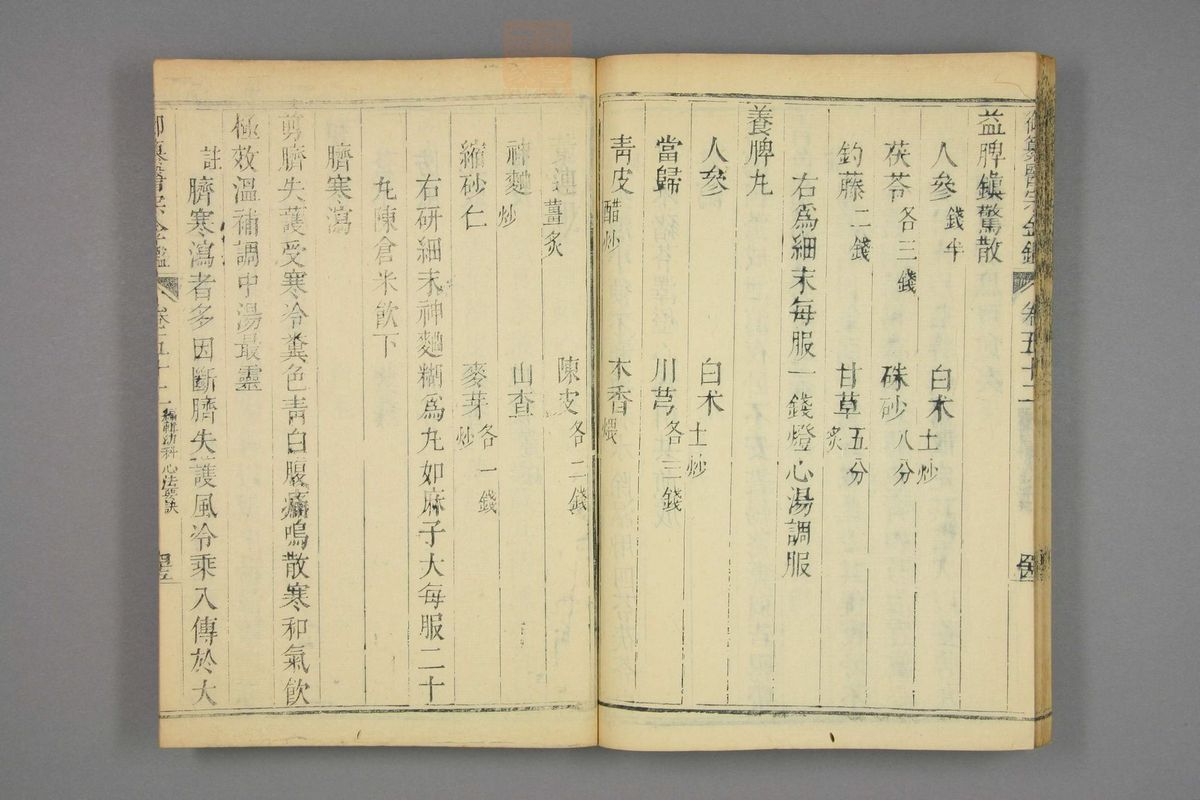 御纂醫宗金鑑 卷五十二
益脾鎮驚散
人參 錢半 白术 土炒
茯苓 各三錢 硃砂 八分
鈎藤 二錢 甘草 五分 炙
右爲細末每服一錢燈心湯調服
養脾丸
人參 白术 土炒
當歸 川芎 各三錢
青皮 醋炒 木香 煨
薑炙 陳皮 各二錢
神麯 炒 山查
縮砂仁 麥芽 炒 各一錢
右研細末神麯糊爲丸如麻子大每服二十
丸陳倉米飲下
臍寒瀉
剪臍失護受寒冷糞色青白腹痛鳴散寒和氣飲
極效溫補調中湯最靈
註 臍寒瀉者多因斷臍失護風冷乘入傳於大
御纂醫宗金鑑 卷五十二 編輯幼科心法要訣